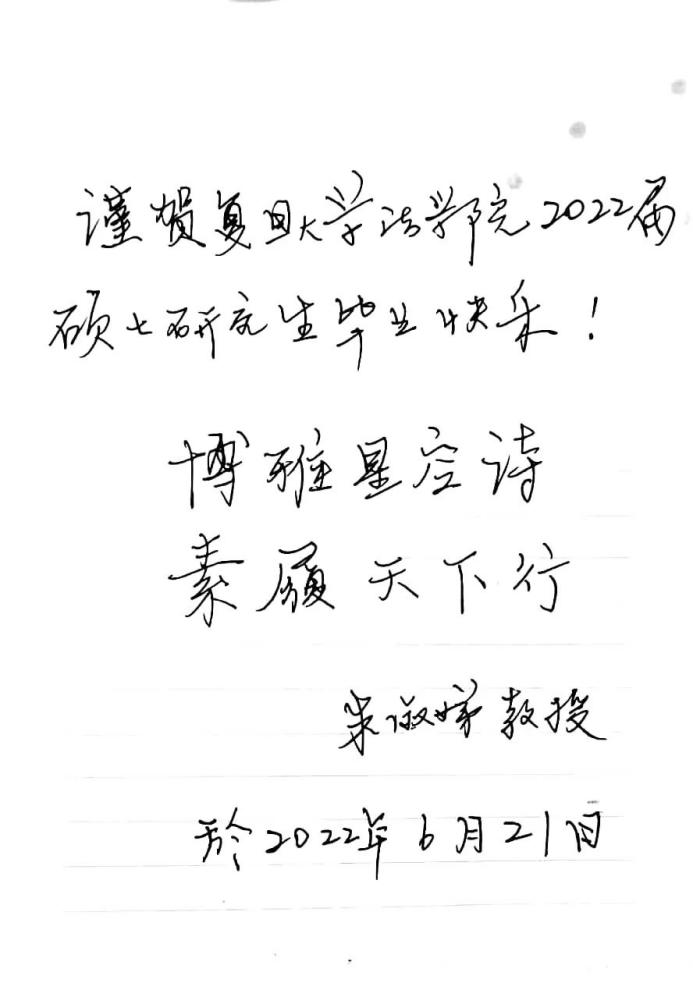 谨贺复旦大学法学院2022届
硕士研究生毕业快乐！
博雅星空诗
素履天下行
教授
於2022年6月21日